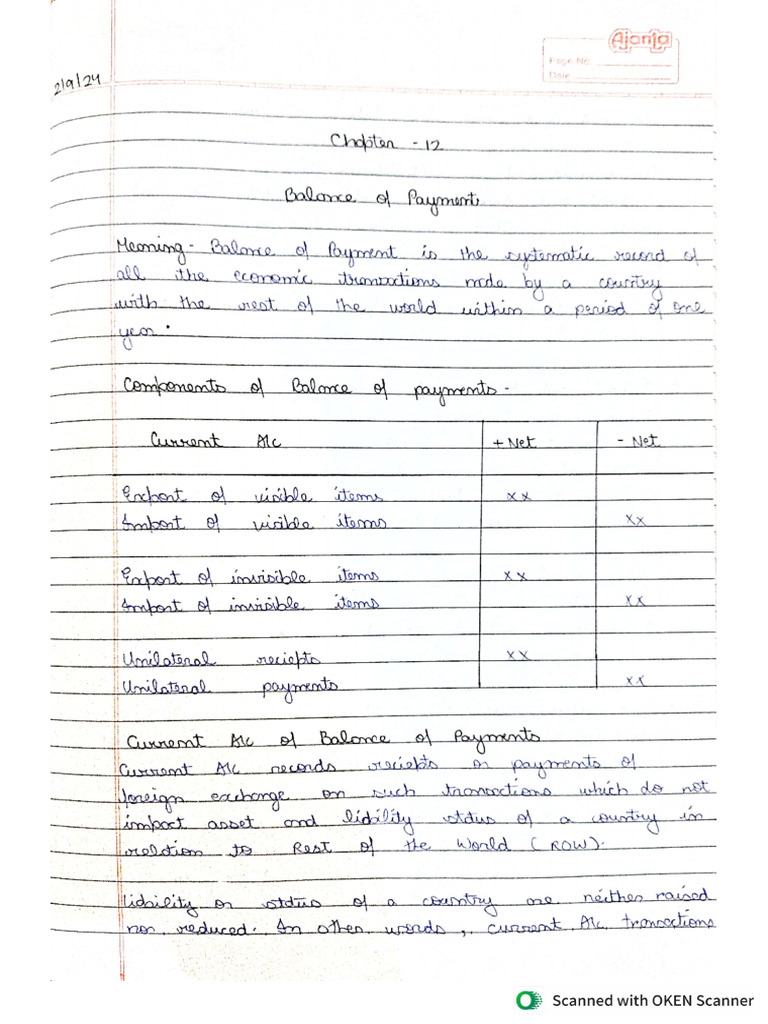 Ajanta
Page No.
Date
2/9/24
Chapter - 12
Balance of Payments
Meaning - Balance of Payment is the systematic record of
all the economic transactions made by a country
with the rest of the world within a period of one
year.
Components of Balance of payments -
Current A/c + Net - Net
Export of visible items xx
Import of visible items xx
Export of invisible items xx
Import of invisible items xx
Unilateral reciepts xx
Unilateral payments xx
Current A/c of Balance of Payments
Current A/c records reciepts or payments of
foreign exchange on such transactions which do not
impact asset and liability status of a country in
relation to Rest of the World (ROW).
liability or status of a country are neither raised
nor reduced. In other words, current A/c transactions
Scanned with OKEN Scanner